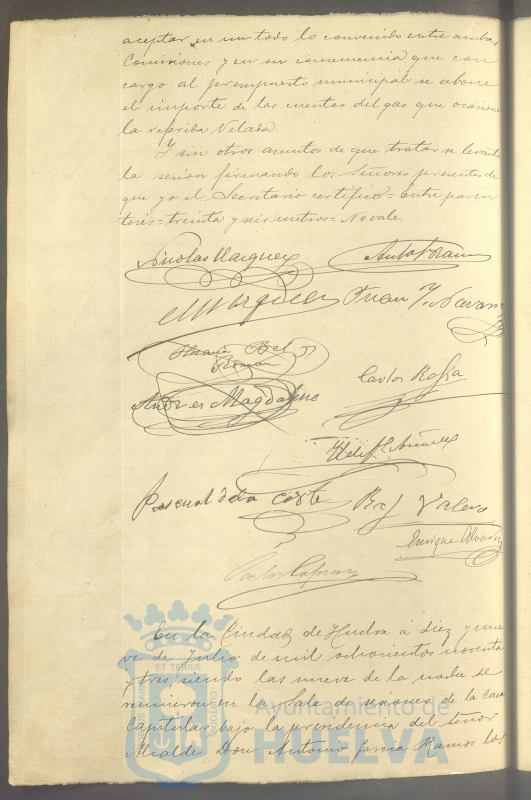 aceptar en un todo lo convenido entre ambas
Comisiones y en su consecuencia que con
cargo al presupuesto municipal se abone
el importe de las cuentas del gas que ocasione
la referida Velada.
Y sin otros asuntos de que tratar se levantó
la sesion firmando los Señores presentes de
que yo el Secretario certifico = Entre paren
tesis = treinta y seis metros = No vale
Nicolas Vazquez
Marquez Juan Y. Navarro
Horacio Bel
Roman
Carlos Rofia
Magdaleno
Pascual de la Corte Raf Valero
Enrique
Carlos
En la Ciudad de Huelva á diez y nue
ve de Julio de mil ochocientos noventa
y tres siendo las nueve de la noche se
reunieron en la Sala de sesiones de la Casa
Capitular bajo la presidencia del Señor
Alcalde Don Antonio Garcia Ramos los
ET TERRÆ
Ayuntamiento de
HUELVA